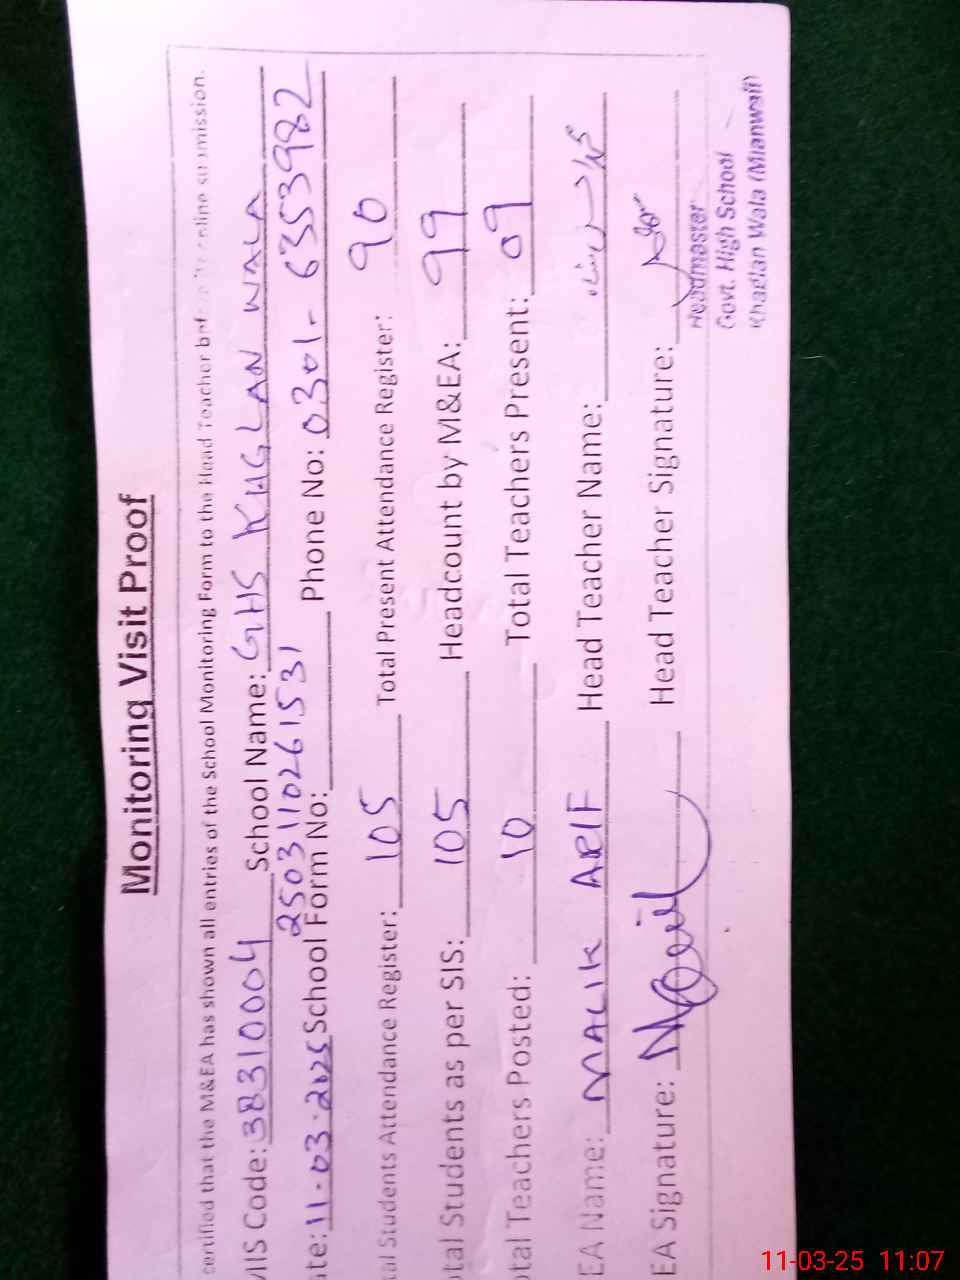 Monitoring Visit Proof
certified that the M&EA has shown all entries of the School Monitoring Form to the Head Teacher before online submission.
MIS Code: 38310004 School Name: GHS KHAGLAN WALA
25031102615 31
ate: 11-03-2025 School Form No: Phone No: 0301-6353982
tal Students Attendance Register: 105 Total Present Attendance Register: 90
otal Students as per SIS: 105 Headcount by M&EA: 99
otal Teachers Posted: 10 Total Teachers Present: 09
EA Name: MALIK ARIF Head Teacher Name:
EA Signature: Head Teacher Signature:
Headmaster
Govt. High School
Khaglan Wala (Mianwali)
11-03-25 11:07